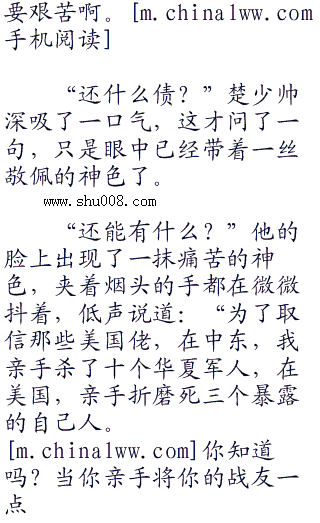 要艰苦啊。[m.china1ww.com
手机阅读]
“还什么债？”楚少帅
深吸了一口气，这才问了一
句，只是眼中已经带着一丝
敬佩的神色了。
www.shu008.com
“还能有什么？”他的
脸上出现了一抹痛苦的神
色，夹着烟头的手都在微微
抖着，低声说道：“为了取
信那些美国佬，在中东，我
亲手杀了十个华夏军人，在
美国，亲手折磨死三个暴露
的自己人。
[m.china1ww.com]你知道
吗？当你亲手将你的战友一
点